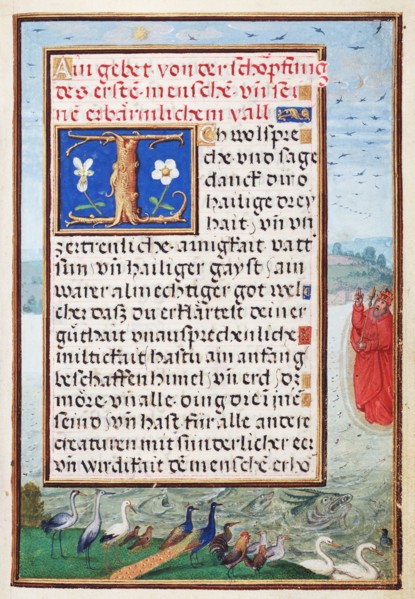 Ain gebet von der schöpfung
des erstē menschē vn̄ sei
nē erbärmlichem vall
Ich wolspre
che vnd sage
danck dir o
hailige drey
hait vn̄ vn
zeitrenliche ainigkait vatt
sun vn̄ hailiger gayst ain
warer almechtiger got wel
cher dasz du erklärtest deiner
güthait vnaussprechenliche
miltickait hastu am anfang
beschaffen himel vn̄ erd dz
möre vn̄ alle ding drei jnē
seind vn̄ hast für alle andere
creaturen mit sunderlicher eer
vn̄ wirdikait dē menschē erhö